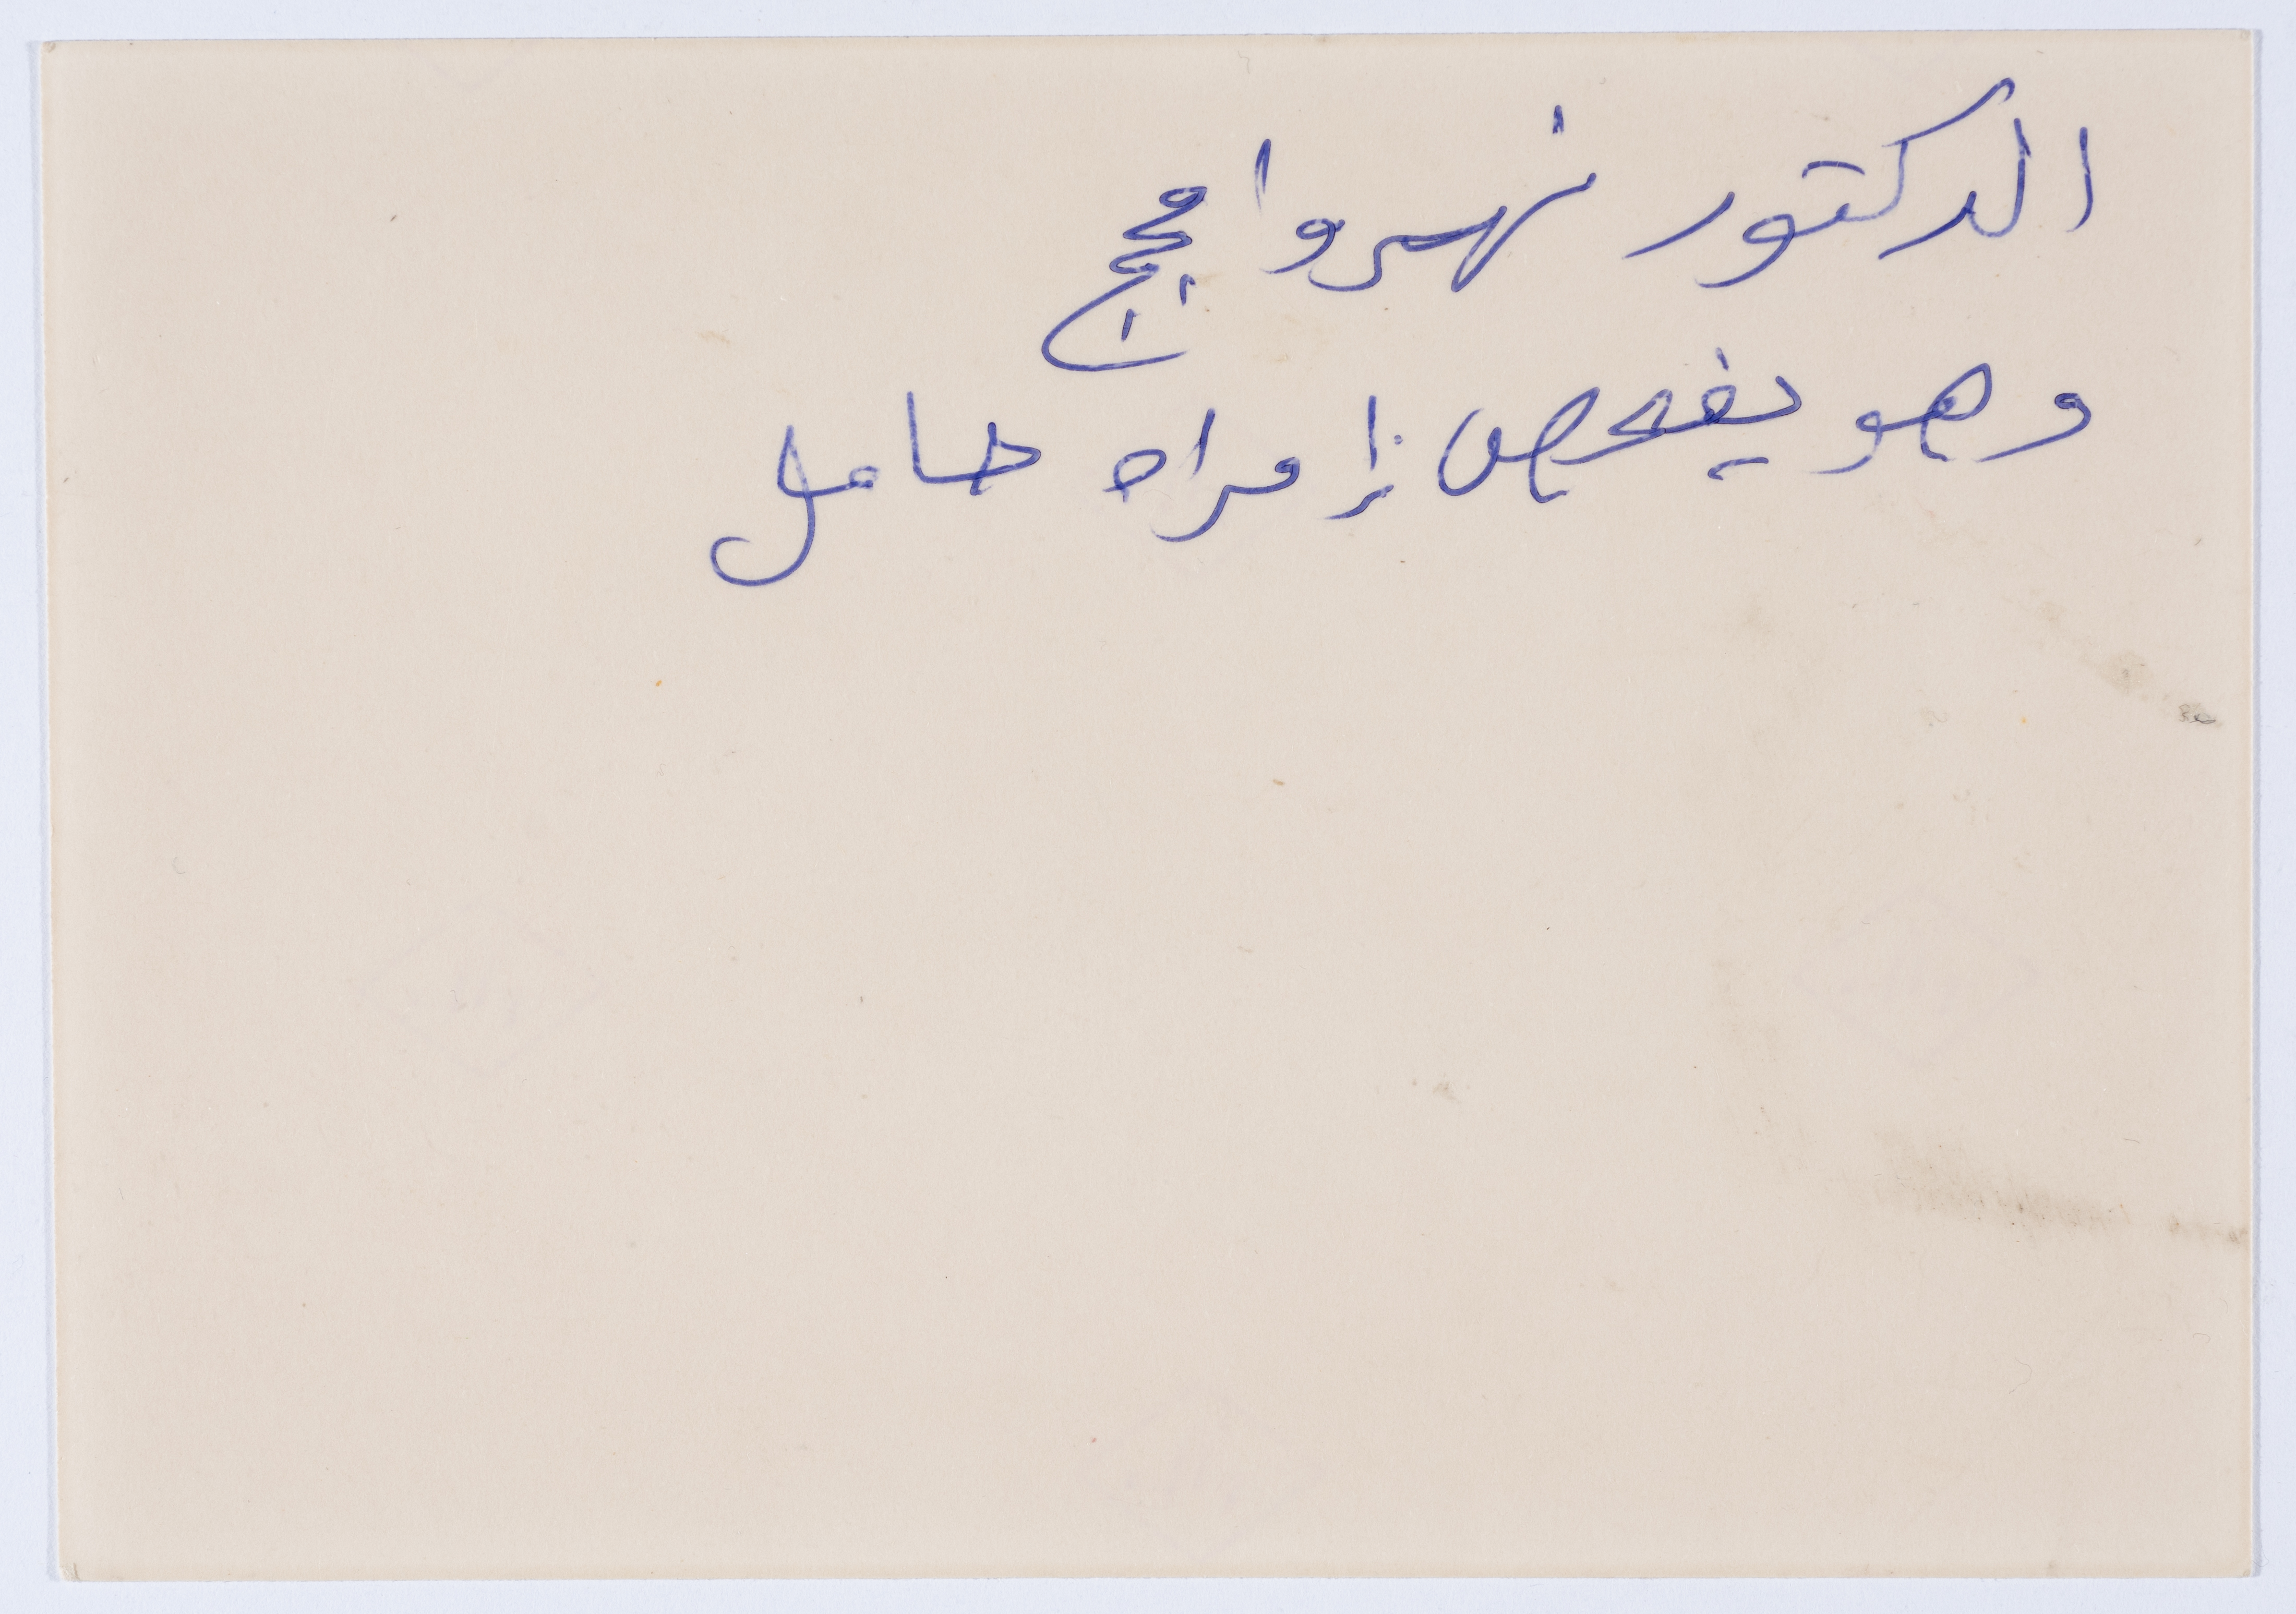 الدكتور نهروا ججج
وهو يفحص إمراه حامل